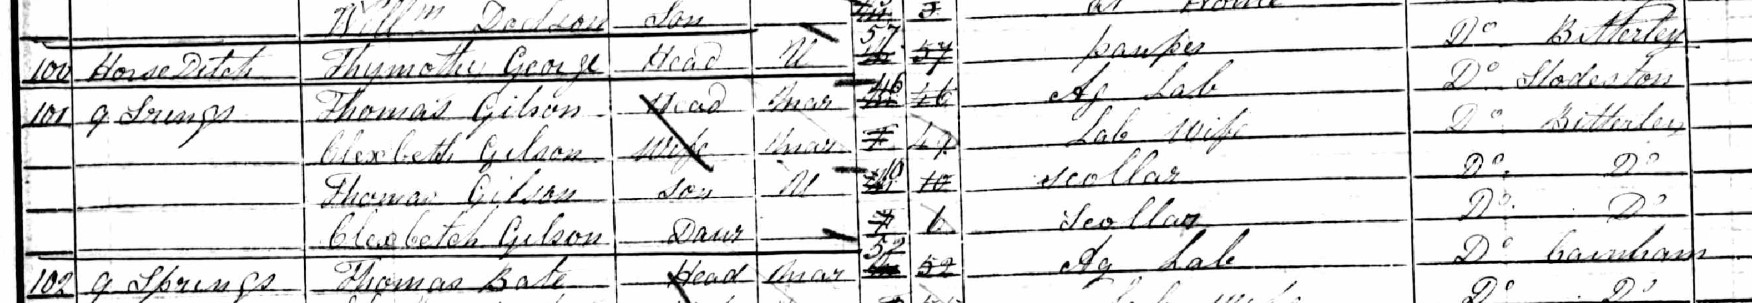 Willm Dodson Son
100 Horse Ditch Thymothy George Head U 57 57 pauper Do Bitterley
101 9 Srings Thomas Gilson Head Mar 46 46 Ag Lab Do Stodeston
Elexbeth Gilson Wife Mar 47 Lab Wife Do Bitterley
Thomas Gilson Son U 10 10 scollar Do Do
Elexbeteh Gilson Daur 6 Scollar Do Do
102 9 Springs Thomas Bate Head Mar 52 52 Ag Lab Do Cainham
Do Do